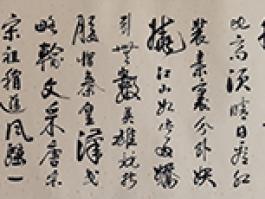 比高須晴日看紅
裝素裹分外妖
嬈江山如此多嬌
引無數英雄競折
腰惜秦皇漢武
略輸文采唐宗
宋祖稍遜風騷一